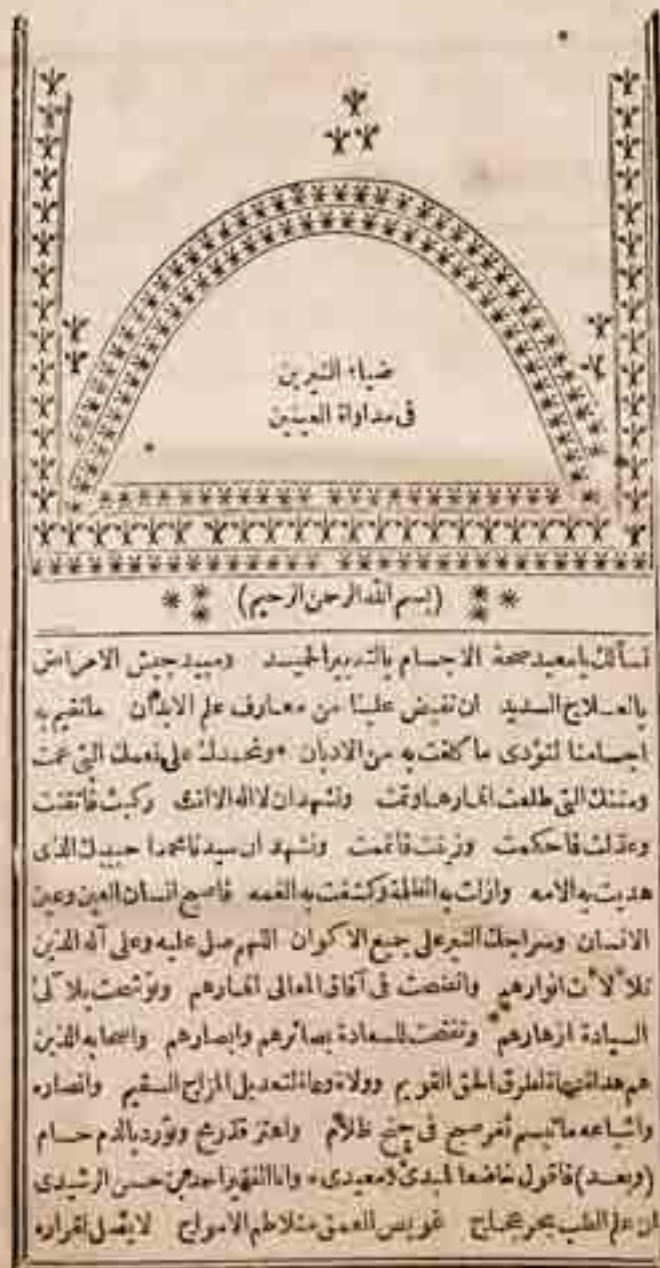 ضياء النيرين
فى مداواة العينين
(بسم الله الرحمن الرحيم)
نسألك يامعيد صحة الاجسام بالتدبير الحميد ومبيد جيش الامراض
بالعلاج السديد ان تفيض علينا من معارف علم الابدان مانقيم به
اجسامنا لنؤدى ما كلفت به من الاديان ونحمدك على نعمك التى عمت
ومننك التى طلعت اقمارها وتمت ونشهد ان لا اله الا انت ركبت فاتقنت
وعدلت فاحكمت وزينت فاتممت ونشهد ان سيدنا محمدا حبيبك الذى
هديت به الامه وازلت به الظلمة وكشفت به الغمه فاصبح انسان العين وعين
الانسان وسراجك النير على جميع الاكوان اللهم صل عليه وعلى آله الذين
تلألأت انوارهم واتضحت فى آفاق المعالى اقمارهم وتوشحت بلآلئ
السيادة ازهارهم وتفتحت للسعادة بصائرهم وابصارهم واصحابه الذين
هم هداة لطرق الحق القويم وولاة لتعديل المزاج السقيم وانصاره
واشياعه ماتبسم ثغر صبح فى جنح ظلام واهتز قد رمح وتورد بالدم حسام
(وبعد) فاقول خاضعا لمبدئ ومعيدى وانا الفقير احمد بن حسن الرشيدى
ان علم الطب بحر عجاج غويص العمق متلاطم الامواج لقراره